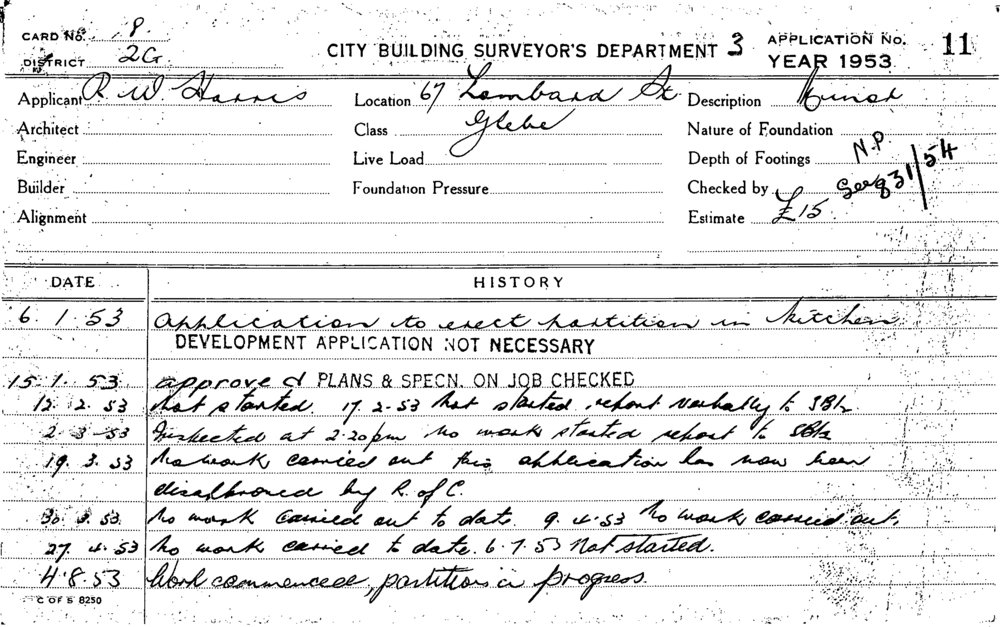 CARD No. 8.
DISTRICT 2G
CITY BUILDING SURVEYOR'S DEPARTMENT 3
APPLICATION No. 11
YEAR 1953
Applicant R. W. Harris
Location 67 Lombard St.
Description Minor
Architect
Class Glebe
Nature of Foundation
Engineer
Live Load
Depth of Footings N.P.
Builder
Foundation Pressure
Checked by See 831/54
Alignment
Estimate £15
DATE HISTORY
6. 1. 53 Application to erect partition in kitchen
DEVELOPMENT APPLICATION NOT NECESSARY
15. 1. 53 approved PLANS & SPECN. ON JOB CHECKED
12. 2. 53 Not started. 17. 2. 53 Not started report verbally to SBIr
2. 3. 53 Inspected at 2.20pm No work started report to SBIr
19. 3. 53 No work carried out this application has now been
disapproved by R. of C.
30. 3. 53 No work carried out to date. 9. 4. 53 No work carried out.
27. 4. 53 No work carried to date. 6. 7. 53 Not started.
4. 8. 53 Work commenced, partition in progress.
C OF S 8250